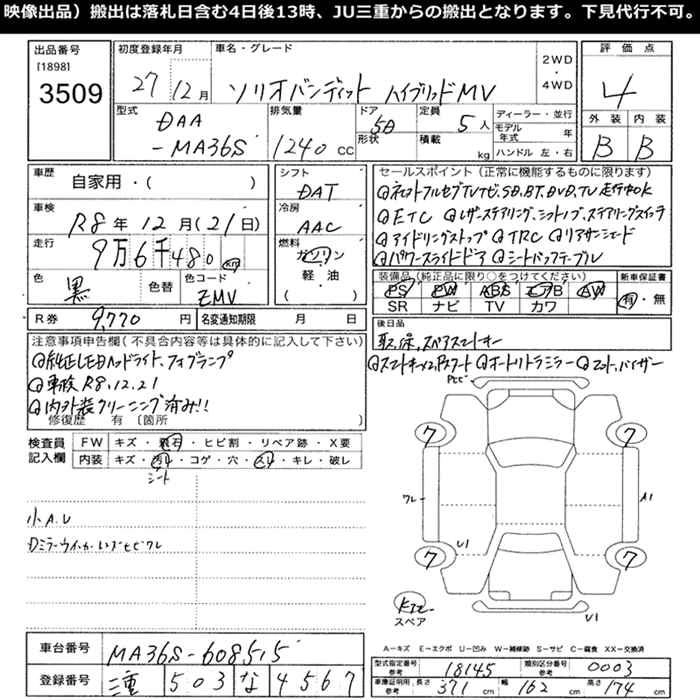 映像出品）搬出は落札日含む4日後13時、JU三重からの搬出となります。下見代行不可。
出品番号
[1898]
3509
初度登録年月
27年12月
車名・グレード
ソリオバンディット ハイブリッドMV
2WD
・
4WD
評価点
4
型式
DAA
-MA36S
排気量
1240 cc
ドア
5D
形状
定員
5人
積載
kg
ディーラー・並行
モデル年式 年
ハンドル 左・右
外装 内装
B B
車歴
自家用・( )
車検
R8年12月(21日)
走行
9万6千480 km
色
黒
色替
色コード
ZMV
シフト
DAT
冷房
AAC
燃料
ガソリン
軽・油
( )
R券 9,770円
名変通知期限 月 日
セールスポイント（正常に機能するものに限ります）
◎ネオストフルセグTVナビ、SD、BT、DVD、TV走行中OK
◎ETC ◎レザーステアリング、シフトノブ、ステアリングスイッチ
◎アイドリングストップ ◎TRC ◎リアサンシェード
◎パワースライドドア ◎シートバックテーブル
装備品（純正品に限り○をつけてください）
PS PW ABS エアB AW
SR ナビ TV カワ
新車保証書
有・無
後日品
取、保、スペアスマートキー
◎スマートキー×2、Pスタート ◎オートリトラミラー ◎マット、バイザー
注意事項申告欄（不具合内容等は具体的に記入して下さい）
◎純正LEDヘッドライト、フォグランプ
◎車検R8.12.21
◎内外装クリーニング済み!!
修復歴 有 〔箇所 〕
検査員
記入欄
FW キズ・飛石・ヒビ割・リペア跡・X要
内装 キズ・汚れ・コゲ・穴・スレ・キレ・破レ
シート
小A.U
Dミラーウィンカーレンズヒビワレ
Pトビ
7 7
ワレ
A1
U1
7 7
キズ
スペア
U1
A－キズ E－エクボ U－凹み W－補修跡 S－サビ C－腐食 XX－交換済
車台番号
MA36S-608515
登録番号
三重 503 な 4567
型式指定番号
参考
18145
類別区分番号
参考
0003
車庫証明用・長さ
参考
371 cm
幅
162 cm
高さ
174 cm